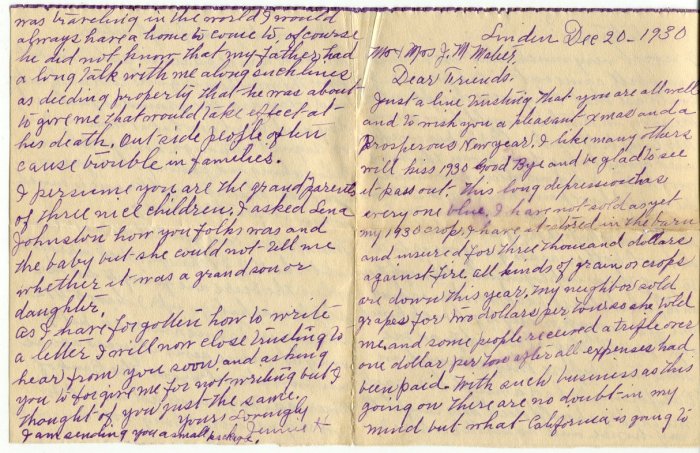 Linden Dec 20 - 1930
Mr & Mrs J. M
Dear Friends.
Just a line trusting that you are all well
and to wish you a pleasant xmas and a
Prosperous New year. I like many others
will kiss 1930 Good Bye and be glad to see
it pass out. This long depression has
every one blue. I have not sold as yet
my 1930 crop. I have it stored in the barn
and insured for three thousand dollars
against fire. all kinds of grain or crops
are down this year. My neighbor sold
grapes for two dollars per ton so she told
me and some people received a trifle over
one dollar per ton after all expenses had
been paid. With such business as this
going on there are no doubt in my
mind but what California is going to
was traveling in the world I would
always have a home to come to, of course
he did not know that my father had
a long talk with me along such lines
as deeding property that he was about
to give me that would take effect at
his death. Out side people often
cause trouble in families.
I persume you are the grand parents
of three nice children. I asked Lena
Johnston how you folks was and
the baby but she could not tell me
whether it was a grand son or
daughter.
As I have forgotten how to write
a letter I will now close trusting to
hear from you soon and asking
you to forgive me for not writing but I
thought of you just the same.
Yours Lovingly
I am sending you a small package. Jennie H